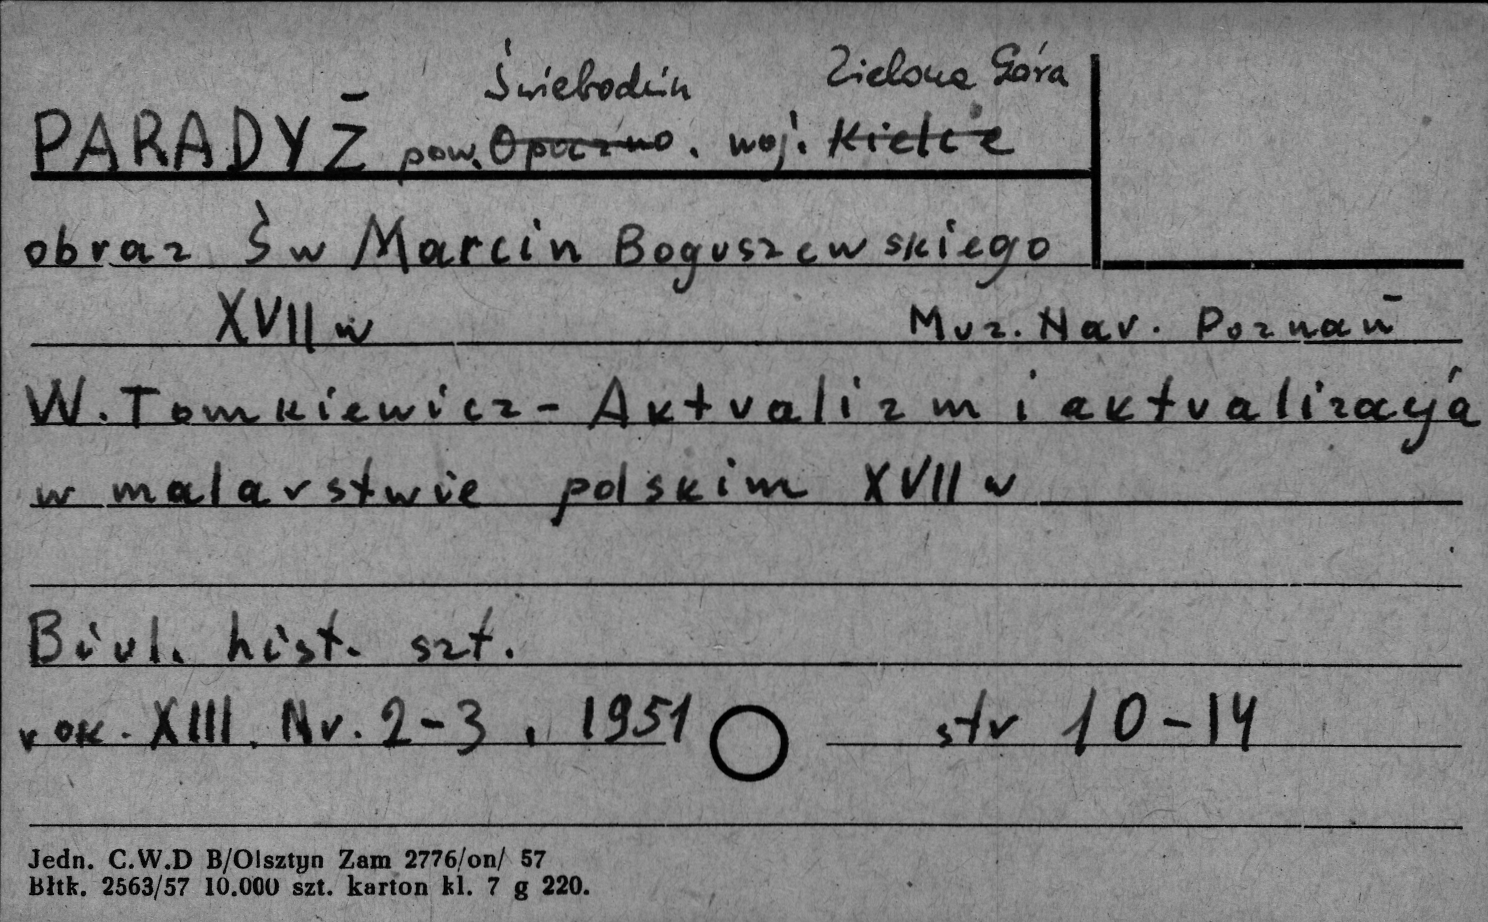 Świebodzin Zielona Góra
PARADYŻ pow. Opoczno. woj. Kielce
obraz Św Marcin Boguszewskiego
XVII w Muz. Nar. Poznań
W. Tomkiewicz - Aktualizm i aktualizacja
w malarstwie polskim XVII w
Biul. hist. szt.
rok. XIII. Nr. 2-3, 1951 str 10-14
Jedn. C.W.D B/Olsztyn Zam 2776/on/ 57
Błtk. 2563/57 10.000 szt. karton kl. 7 g 220.